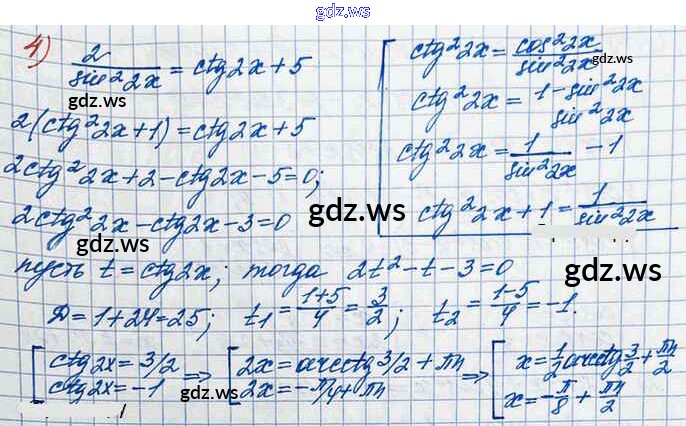 gdz.ws
4) 2/sin²2x = ctg2x+5
gdz.ws
2(ctg²2x+1)=ctg2x+5
2ctg²2x+2-ctg2x-5=0;
2ctg²2x-ctg2x-3=0
gdz.ws
ctg²2x=cos²2x/sin²2x
gdz.ws
ctg²2x=1-sin²2x/sin²2x
ctg²2x=1/sin²2x -1
ctg²2x+1=1/sin²2x
gdz.ws
пусть t=ctg2x; тогда 2t²-t-3=0
gdz.ws
Д=1+24=25; t₁=1+5/4=3/2; t₂=1-5/4=-1.
[ctg2x=3/2 ⇒ [2x=arcctg3/2+πn ⇒ [x=1/2arcctg3/2+πn/2
ctg2x=-1 2x=-π/4+πn x=-π/8+πn/2
gdz.ws